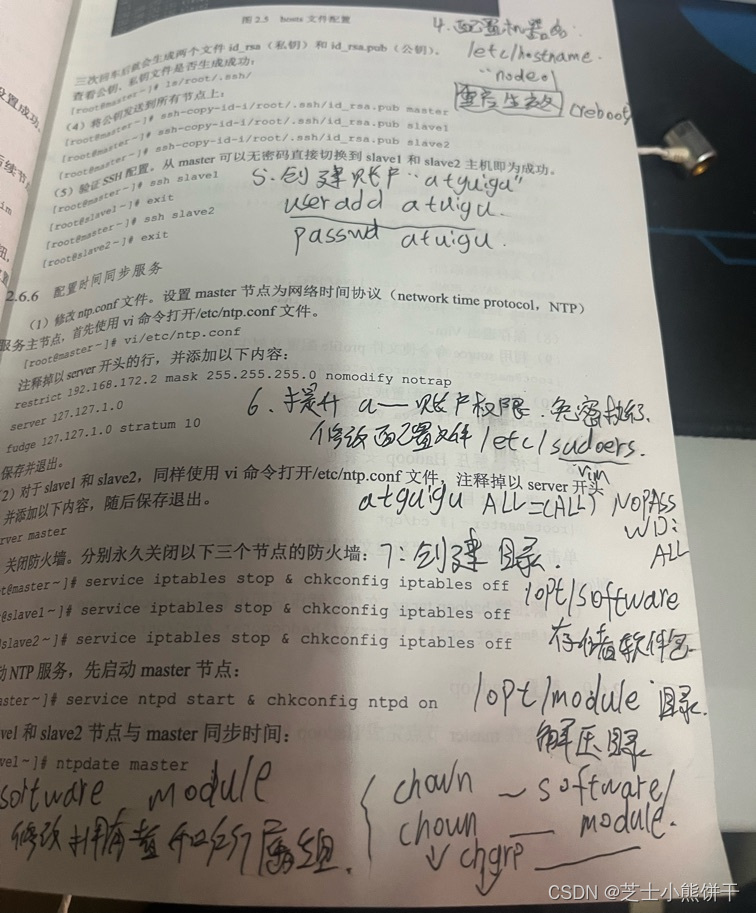 图 2.5 hosts 文件配置
4. 配置机器名:
/etc/hostname.
"node01
重启生效 (reboot
三次回车后就会生成两个文件 id_rsa（私钥）和 id_rsa.pub（公钥）。
查看公钥、私钥文件是否生成成功：
[root@master~]# ls/root/.ssh/
（4）将公钥发送到所有节点上：
[root@master~]# ssh-copy-id-i/root/.ssh/id_rsa.pub master
[root@master~]# ssh-copy-id-i/root/.ssh/id_rsa.pub slave1
[root@master~]# ssh-copy-id-i/root/.ssh/id_rsa.pub slave2
（5）验证 SSH 配置。从 master 可以无密码直接切换到 slave1 和 slave2 主机即为成功。
[root@master~]# ssh slave1
[root@slave1~]# exit
[root@master~]# ssh slave2
[root@slave2~]# exit
5. 创建账户"atguigu"
useradd atuigu.
passwd atuigu.
2.6.6 配置时间同步服务
（1）修改 ntp.conf 文件。设置 master 节点为网络时间协议（network time protocol，NTP）
服务主节点，首先使用 vi 命令打开/etc/ntp.conf 文件。
[root@master~]# vi/etc/ntp.conf
注释掉以 server 开头的行，并添加以下内容：
restrict 192.168.172.2 mask 255.255.255.0 nomodify notrap
server 127.127.1.0
fudge 127.127.1.0 stratum 10
6. 提升 a一账户权限. 免密执行.
修改配置文件 /etc/sudoers.
vim
保存并退出。
2）对于 slave1 和 slave2，同样使用 vi 命令打开/etc/ntp.conf 文件，注释掉以 server 开头
并添加以下内容，随后保存退出。
atguigu ALL=(ALL) NOPASS
WD:
ALL
rver master
关闭防火墙。分别永久关闭以下三个节点的防火墙：
7: 创建目录.
t@master~]# service iptables stop & chkconfig iptables off
@slave1~]# service iptables stop & chkconfig iptables off
slave2~]# service iptables stop & chkconfig iptables off
/opt/software
存储着软件包
动 NTP 服务，先启动 master 节点：
aster~]# service ntpd start & chkconfig ntpd on
/opt/module 目录.
解压目录
ve1 和 slave2 节点与 master 同步时间：
ve1~]# ntpdate master
software module
修改拥有者和所属组.
chown — software/
chown — module.
chgrp
置成功,
后续节
im
CSDN @芝士小熊饼干